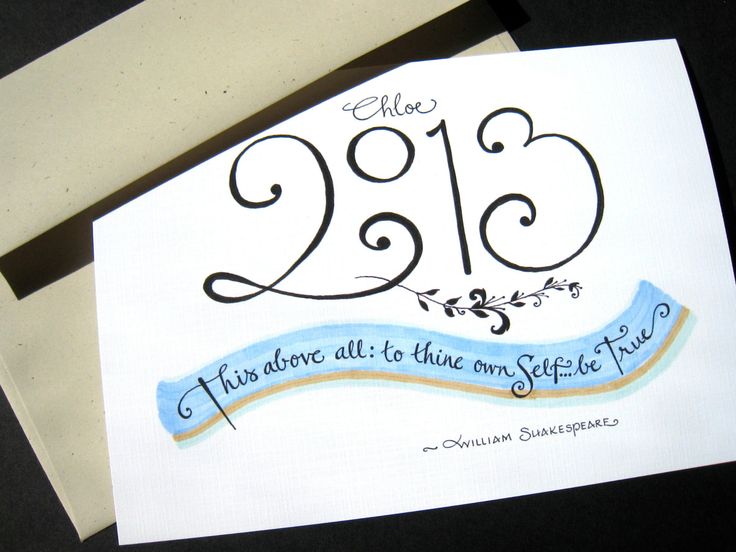 Chloe
2013
This above all: to thine own Self... be True
~ William Shakespeare